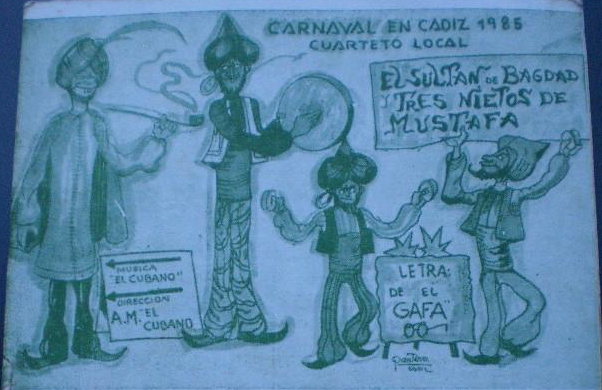 CARNAVAL EN CADIZ 1985
CUARTETO LOCAL
EL SULTAN DE BAGDAD
Y TRES NIETOS DE
MUSTAFA
MUSICA
"EL CUBANO"
DIRECCION
A.M. "EL
CUBANO
LETRA:
DE EL
GAFA"